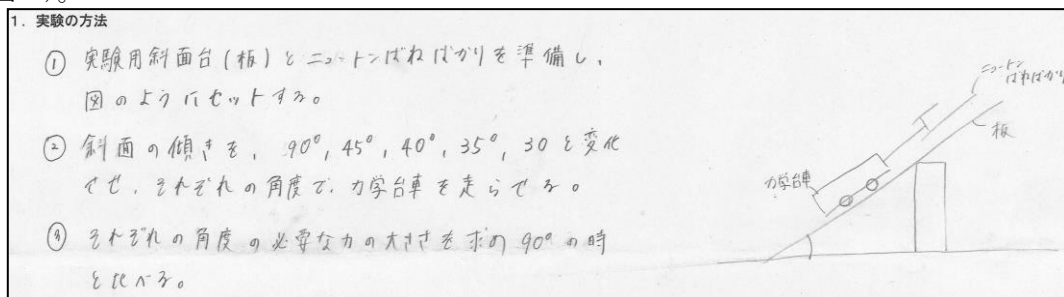 1．実験の方法
① 実験用斜面台(板)とニュートンばねばかりを準備し、
図のようにセットする。
② 斜面の傾きを、90°, 45°, 40°, 35°, 30と変化
させ、それぞれの角度で、力学台車を走らせる。
③ それぞれの角度の必要な力の大きさを求め90°の時
と比べる。
ニュートン
ばねばかり
板
力学台車